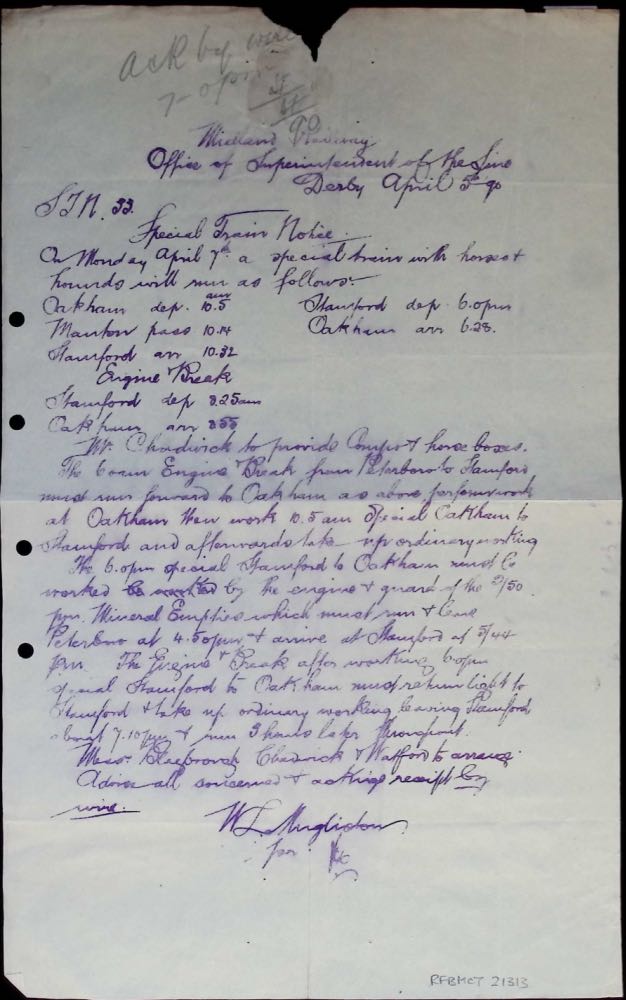 ack by wire
7-0 pm
Midland Railway
Office of Superintendent of the Line
Derby April 5 90
STN. 33.
Special Train Notice.
On Monday April 7th a special train with horses &
hounds will run as follows:-
Oakham dep. 10.5 am Stamford dep. 6.0pm
Manton pass 10.14 Oakham arr 6.28.
Stamford arr 10.32
Engine & Break
Stamford dep 8.25am
Oakham arr 8.55
Mr. Chadwick to provide Compo & horse boxes.
The 6.0am Engine & Break from Peterboro to Stamford,
must run forward to Oakham as above perform work
at Oakham then work 10.5 am Special Oakham to
Stamford and afterwards take up ordinary working
The 6.0pm special Stamford to Oakham must be
worked be worked by the engine & guard of the 2/50
pm. Mineral Empties which must run & leave
Peterboro at 4.50pm & arrive at Stamford at 5/44
pm. The Engine & Break after working 6.0pm
special Stamford to Oakham must return light to
Stamford & take up ordinary working leaving Stamford
about 7.10pm & run 3 hours later throughout.
Messrs Chadwick & Watford to arrange.
Advise all concerned & acknge receipt by
wire.
W L Mugliston
per
RFBMCT 21313